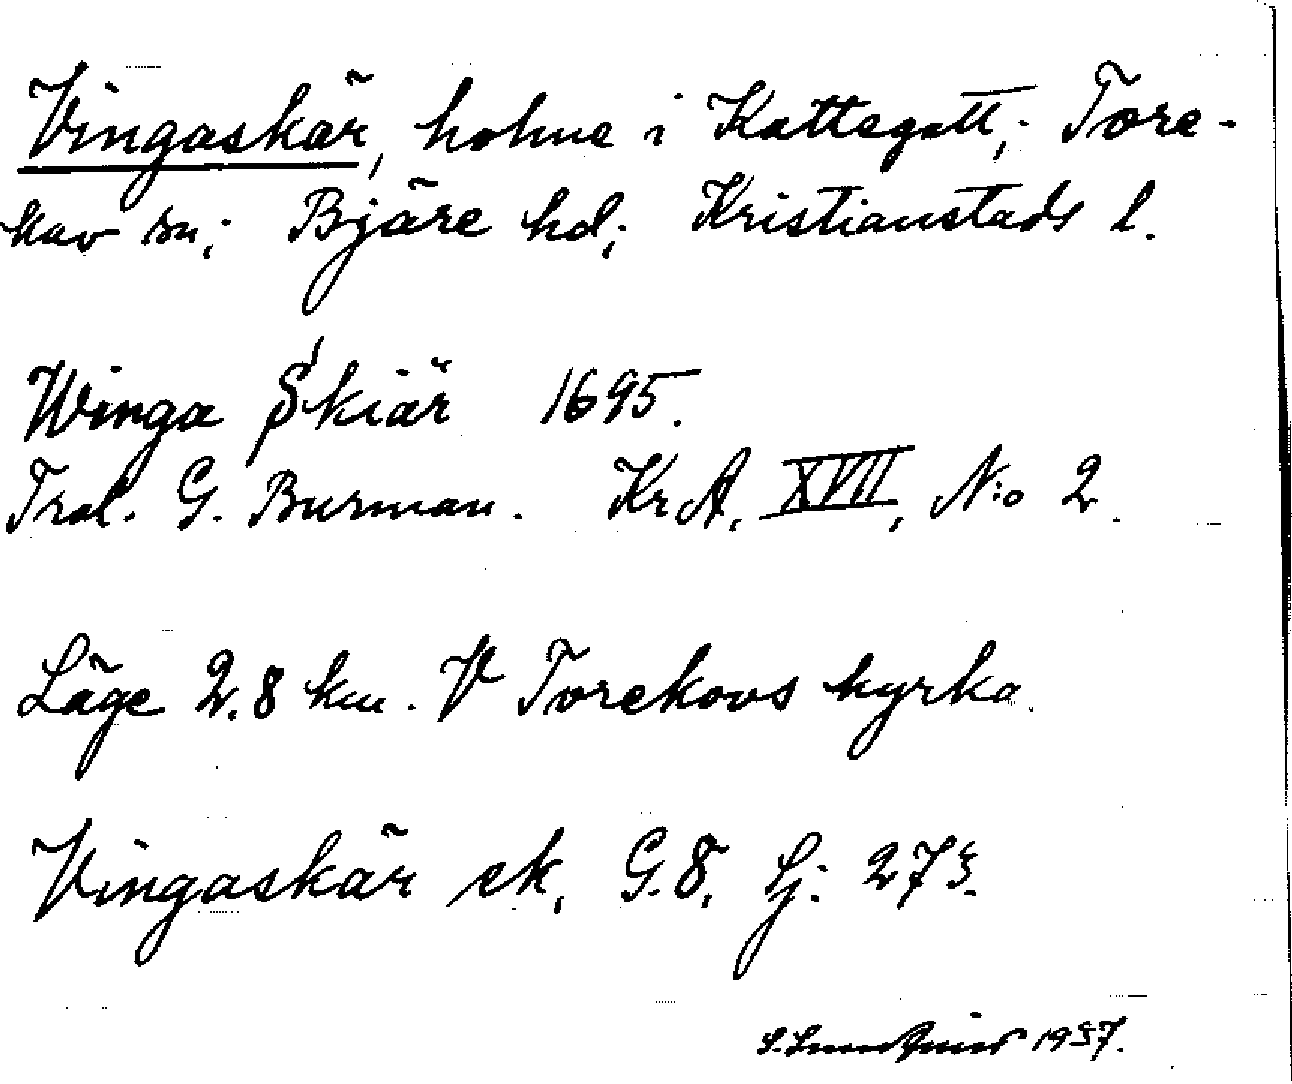 Vingaskär, holme i Kattegatt; Tore-
kov sn; Bjäre hd; Kristianstads l.
Winga Skiär 1695.
Trol. G. Burman. KrA, XVII, N:o 2.
Läge 2.8 km. V Torekovs kyrka.
Vingaskär ek. G.8. Hj: 273.
1937.